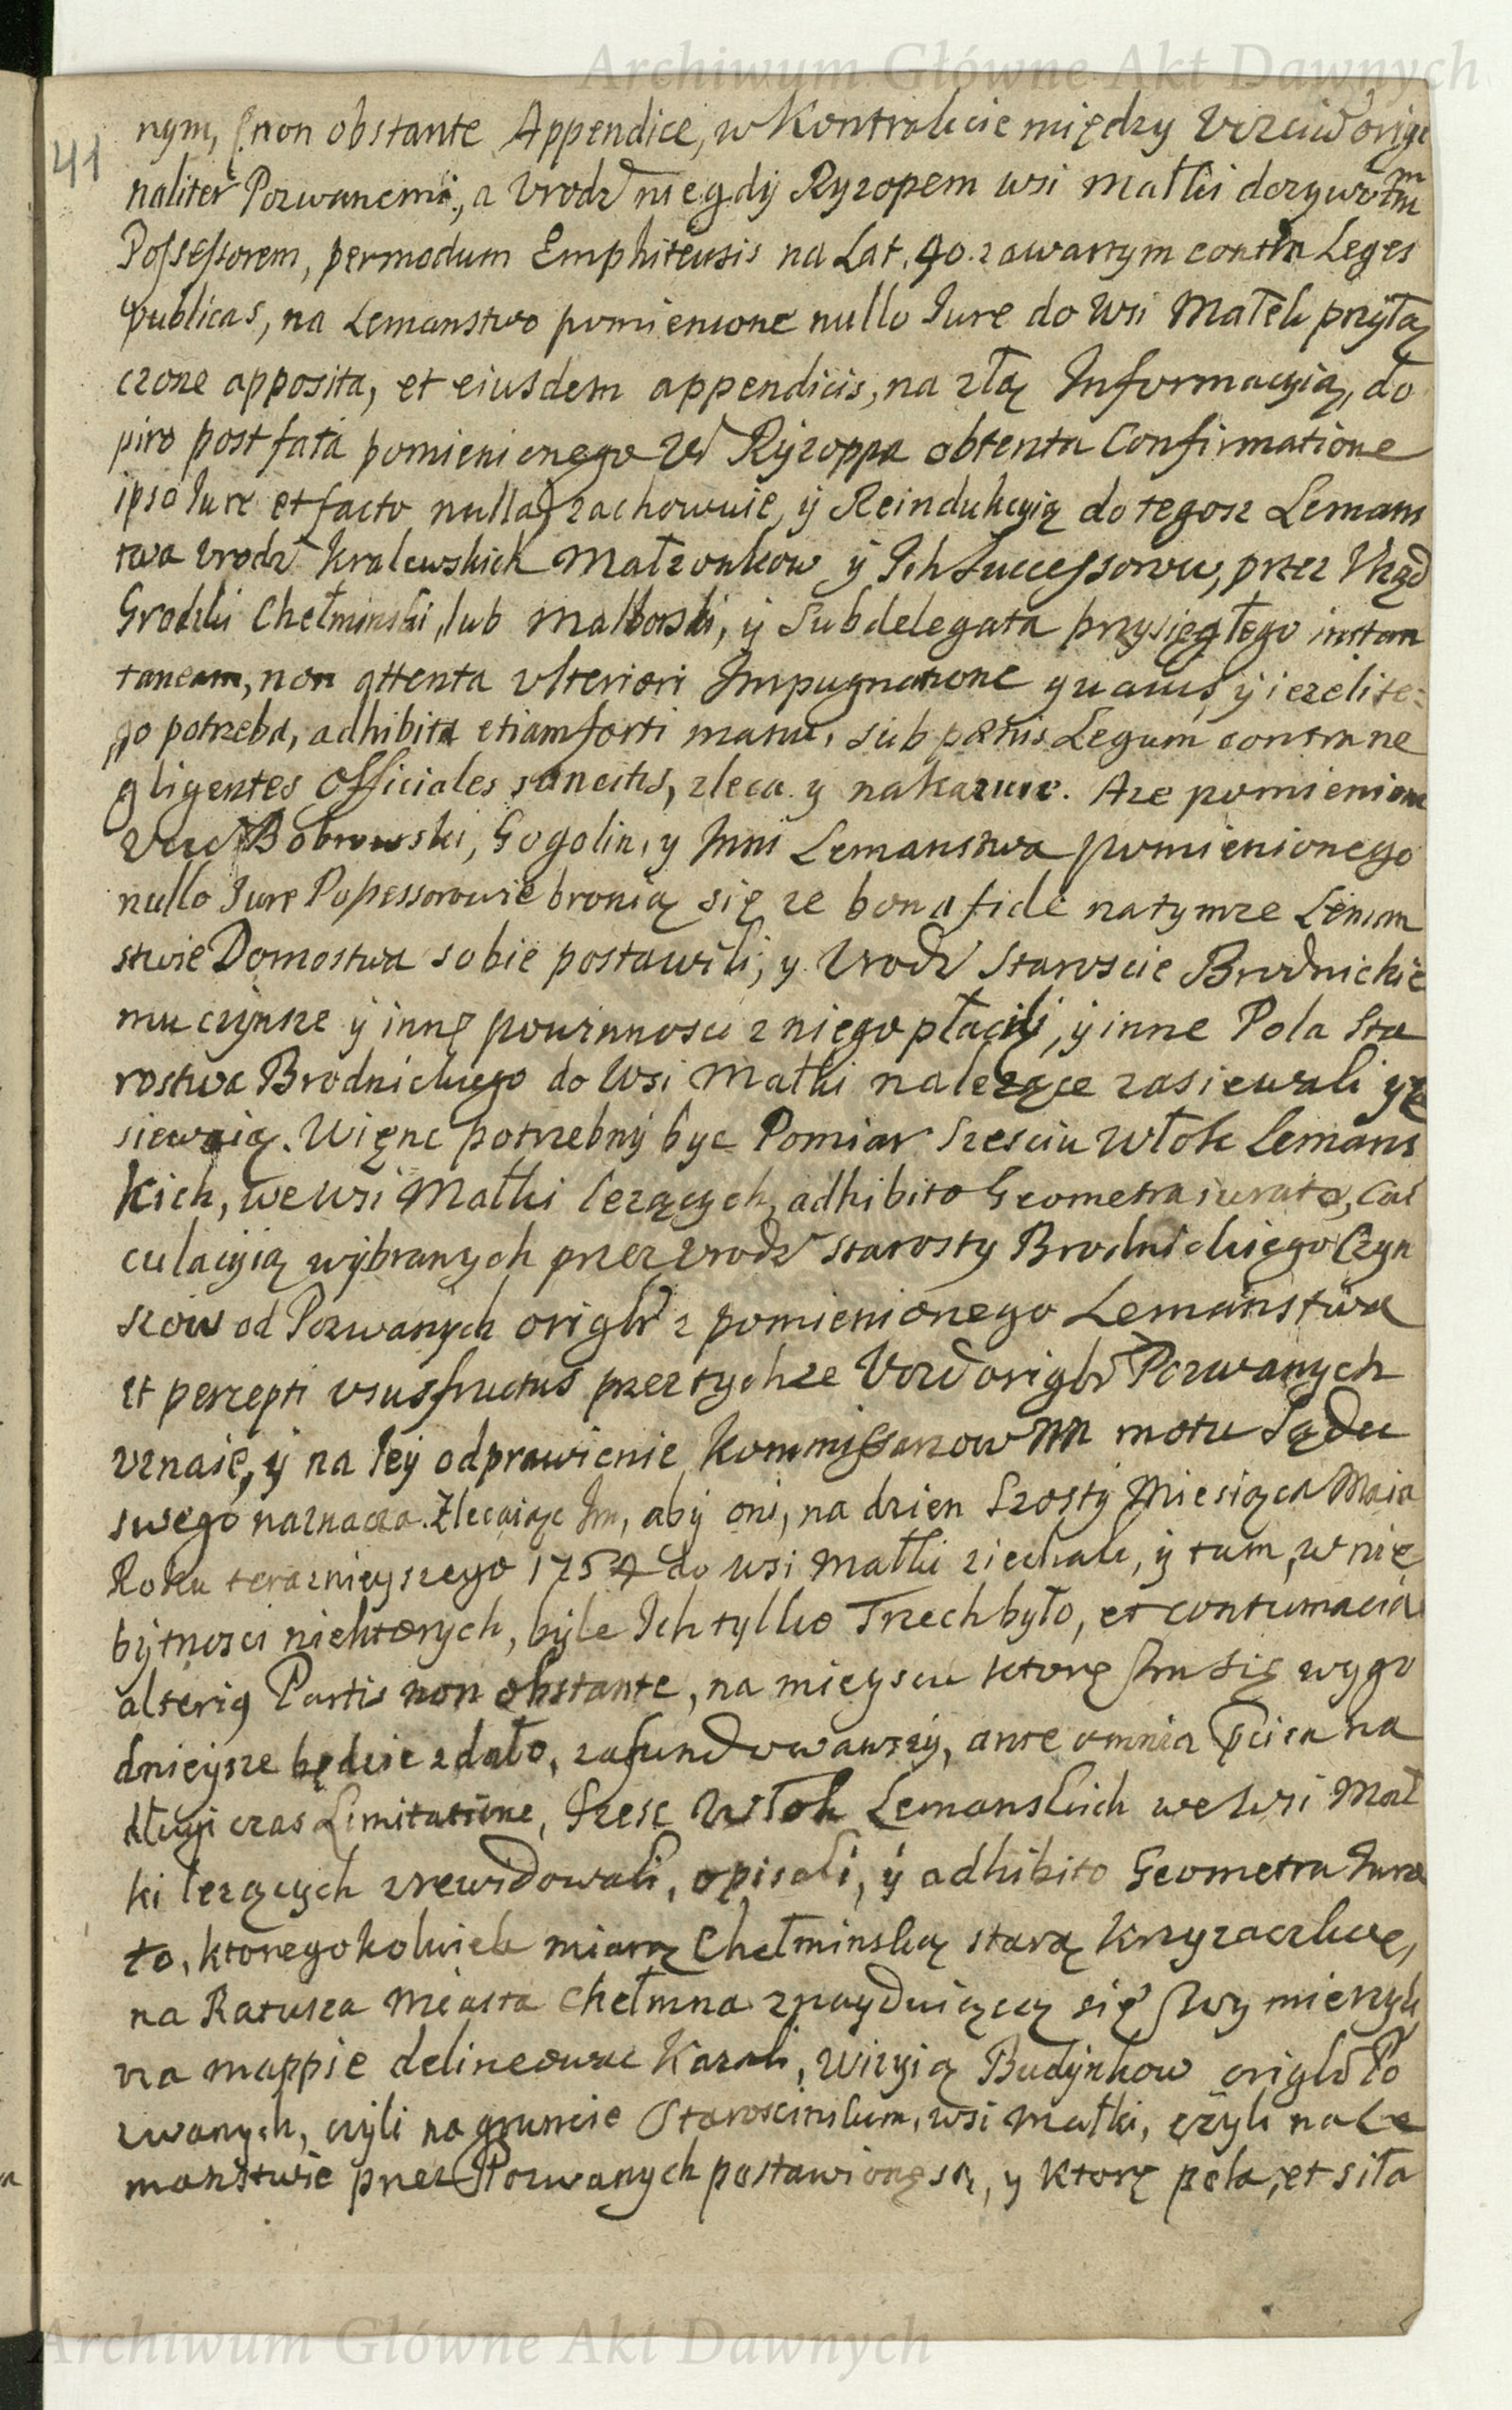 Archiwum Główne Akt Dawnych
41
nym, (non obstante Appendice, w Kontrakcie między Vrzciw origi
naliter Pozwanemi, a Vrodz niegdy Ryzopem wsi Małki dozywotnim
Possessorem, per modum Emphiteusis na Lat. 40. zawartym contra Leges
publicas, na Lemanstwo pomienione nullo Jure do Wsi Małek przyłą
czone apposita, et eiusdem appendicis, na złą Informacyią, do
piro post fata pomienionego Vd Ryzoppa obtenta Confirmatione
ipso Jure et facto nulla) zachowuie, y Reindukcyią do tegosz Lemans
twa Vrodz Kralewskich Małzonkow y Ich Successorow, przez Vrząd
Grodzki Chełminski, lub Malborski, y Subdelegata przysięgłego instan
taneam, non attenta vlteriori Impugnatione quavis, y iezeli te:
go potrzeba, adhibita etiam forti manu, sub pœnis Legum contra ne
gligentes Officiales sancitis, zleca y nakazuie. A ze pomienieni
Vrzciw Bobrowski, Gogolin, y Inni Lemanstwa pomienionego
nullo Jure Possessorowie bronią się ze bona fide na tymze Leman
stwie Domostwa sobie postawili, y Vrodz Staroscie Brodnickie
mu czynsze y inne powinnosci z niego płacili, y inne Pola Sta
rostwa Brodnickiego do Wsi Małki nalezące zasiewali y ze
siewaią. Więnc potrzebny byc Pomiar Szesciu Włok Lemans
kich, we wsi Małki lezących, adhibito Geometra iurato, Cal
culacyią wybranych przez Vrodz Starosty Brodnickiego Czyn
szow od Pozwanych origlr z pomienionego Lemanstwa
et percepti vsusfructus przez tychze Vrzd origlr Pozwanych
vznaie, y na Iey odprawienie Kommissarzow NN motu Sądu
swego naznacza. Zlecaiąc Im, aby oni, na dzien Szosty Miesiąca Maia
Roku teraznieyszego 1754 do wsi Małki ziechali, y tam, w nie
bytnosci niektorych, byle Ich tylko Trzech było, et contumacia
alterius Partis non obstante, na mieyscu ktore Im się wygo
dnieysze będzie zdało, zafundowawszy, ante omnia ścisą na
długi czas Limitatione, Szesc Włok Lemanskich we Wsi Mał
ki lezących zrewidowali, opisali, y adhibito Geometra Jura
to, ktoregokolwiek miarą Chełminską starą Krzyzackue,
na Ratusza Miasta Chełmna znayduiącą się wymierzyli,
na mappie delineowac Kazali, Wizyią Budynkow origlr Po
zwanych, czyli na gruncie Staroscinskim, wsi Małki, czyli na Le
manstwie przez Pozwanych postawione są, y ktore pola, et siła
Archiwum Główne Akt Dawnych